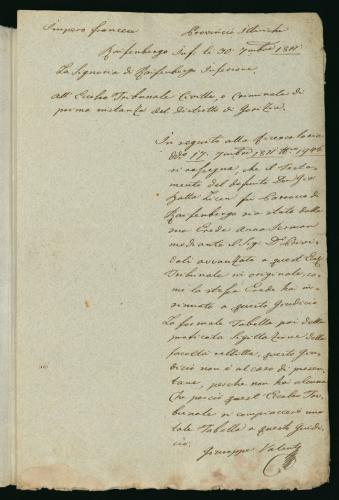 Impero francese Provincie Illiriche
Raifenbergo Inf. li 30 7mbre 1811
La Signoria di Raifenbergo Inferiore
All' Eccelso Tribunale Civile, e Criminale di
prima instanza del Distretto di Gorizia.
In seguito alla
ddo 17. 7mbre 1811 No 1946
si rassegna, che il Testa-
mento del defunto Don Gio
Batta fu Parroco di
Raifenbergo sia stato dalla
sua Erede Anna
mediante il Sigr Dr
avvanzato a quest' Ecc
Tribunale in originale, co-
me la stessa Erede ha in-
sinuato a questo Giudicio
La formale Tabella poi della
facoltà relitta, questo Giu-
dicio non è al caso di presen-
tare, perche non ha alcuna
che perciò quest' Eccelso Tri-
bunale si compiacerà una
tale Tabella a questo Giudi-
cio.
Giuseppe